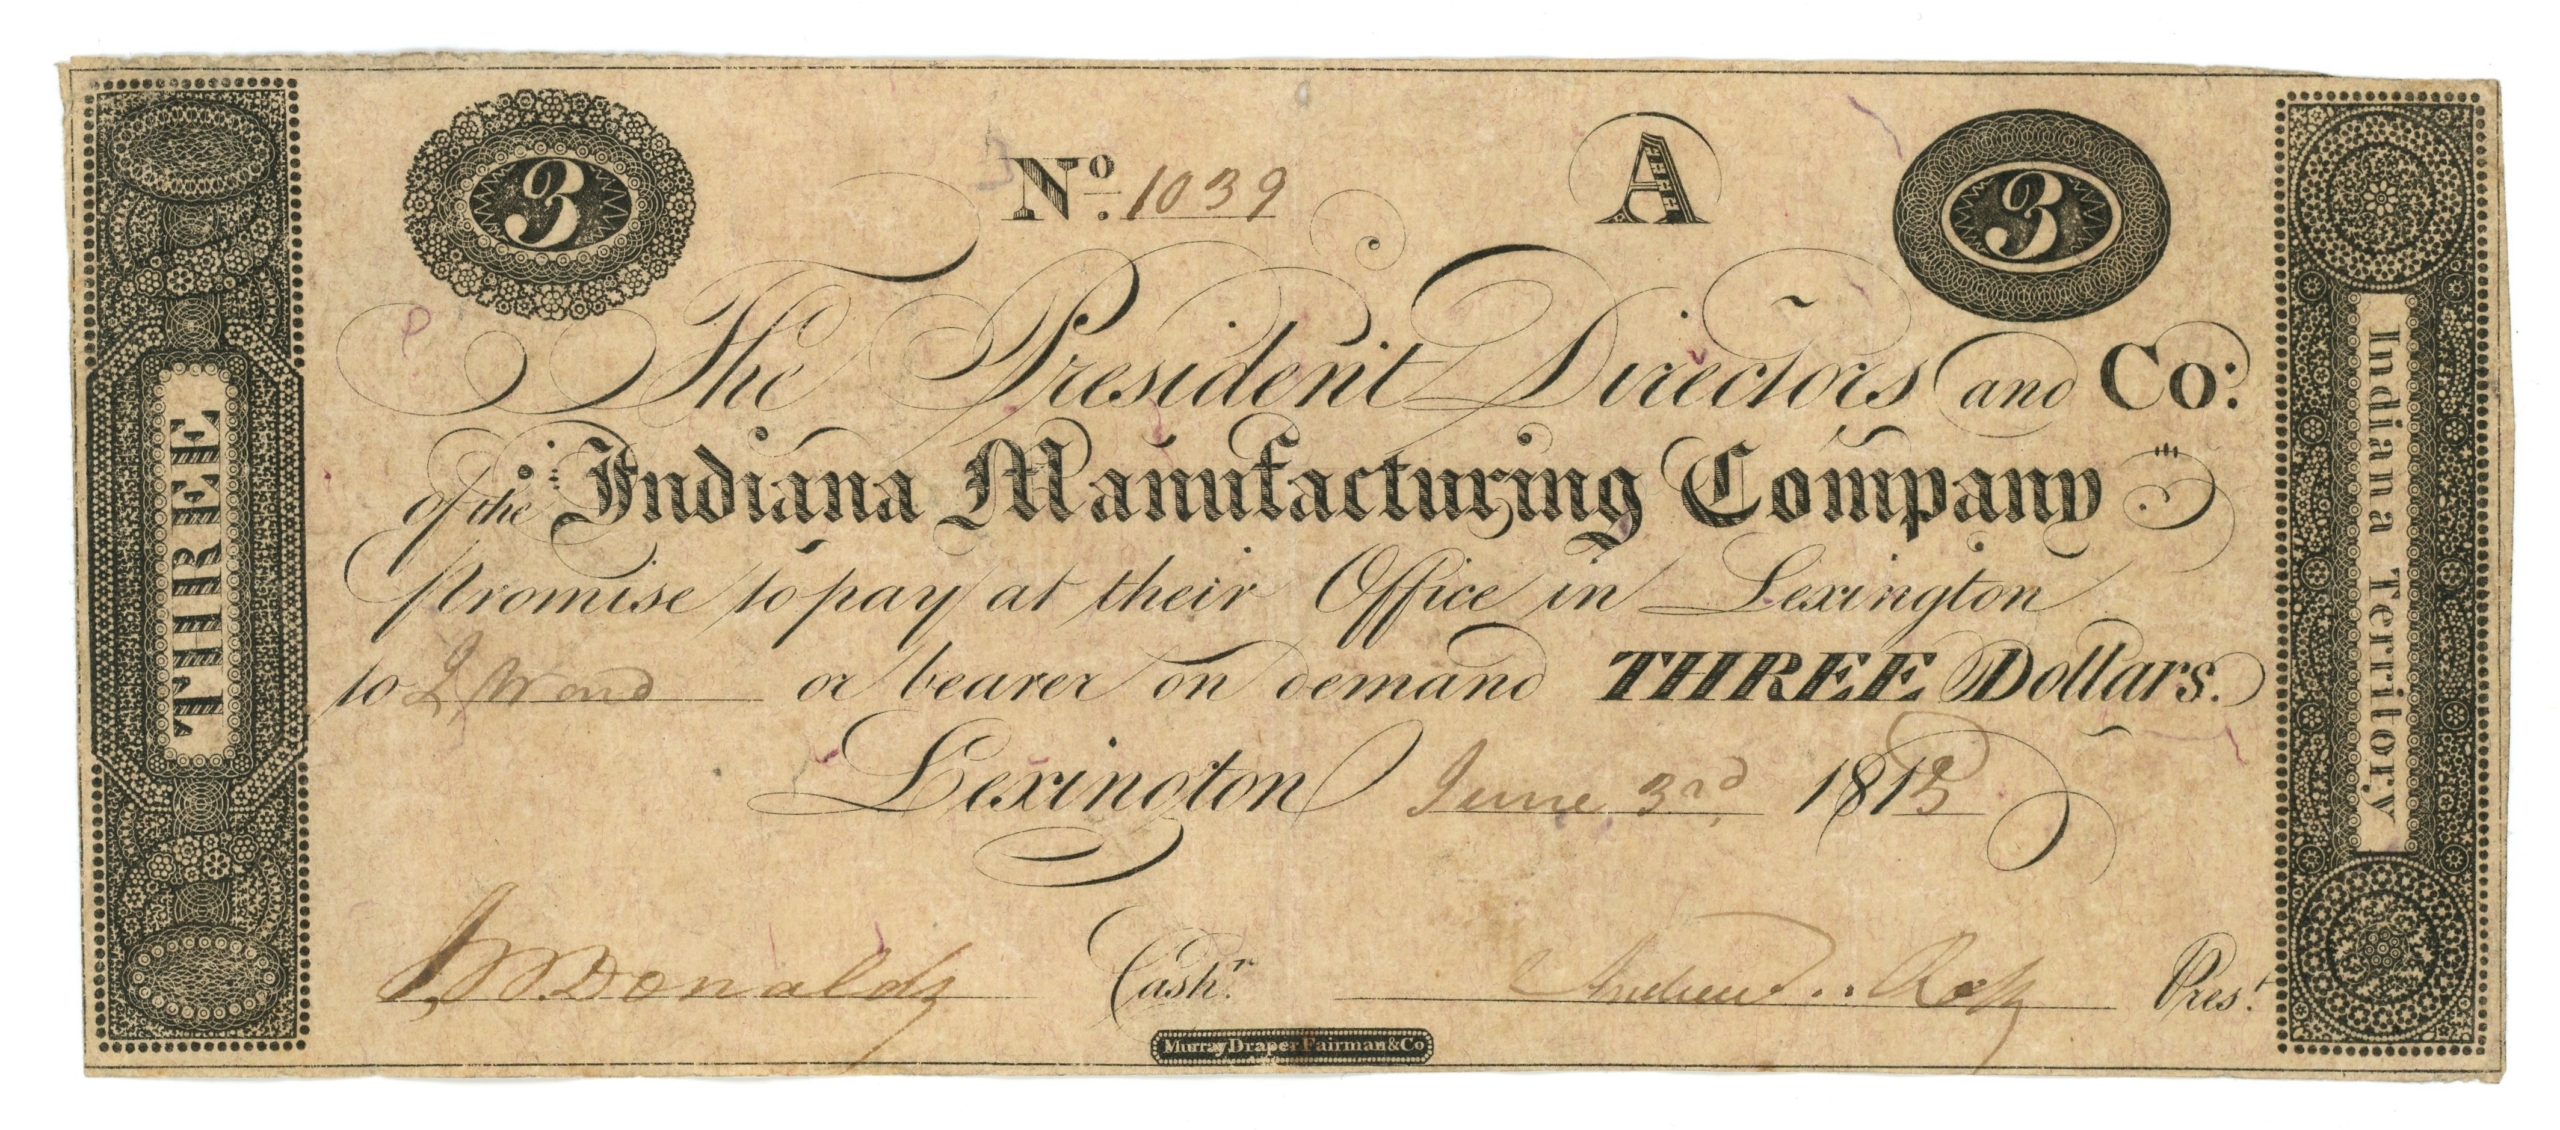 3
Nº. 1039
A
3
The President Directors and Co:
of the Indiana Manufacturing Company
Promise to pay at their Office in Lexington
to or bearer on demand THREE Dollars.
Lexington June 3rd 1813
J. McDonald Cashr.
Andrew Prest.
Murray Draper Fairman & Co
THREE
Indiana Territory